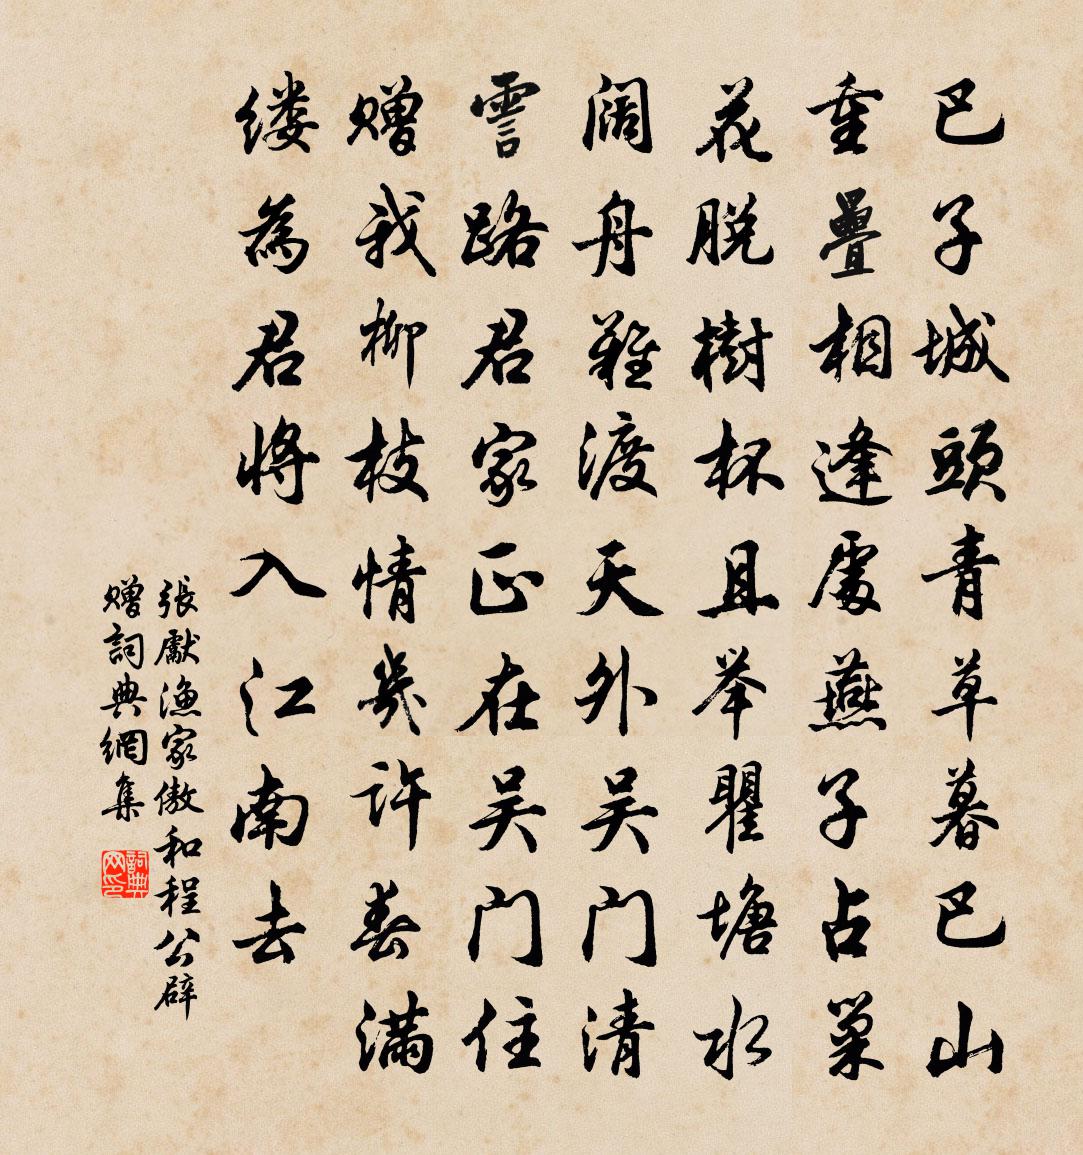 巴子城頭青草暮巴山
重疊相逢處燕子占巢
花脱樹杯且举瞿塘水
阔舟難渡天外吴门清
霅路君家正在吴门住
赠我柳枝情幾许春满
缕為君将入江南去
張獻渔家傲和程公辟
赠詞典網集
詞典网印